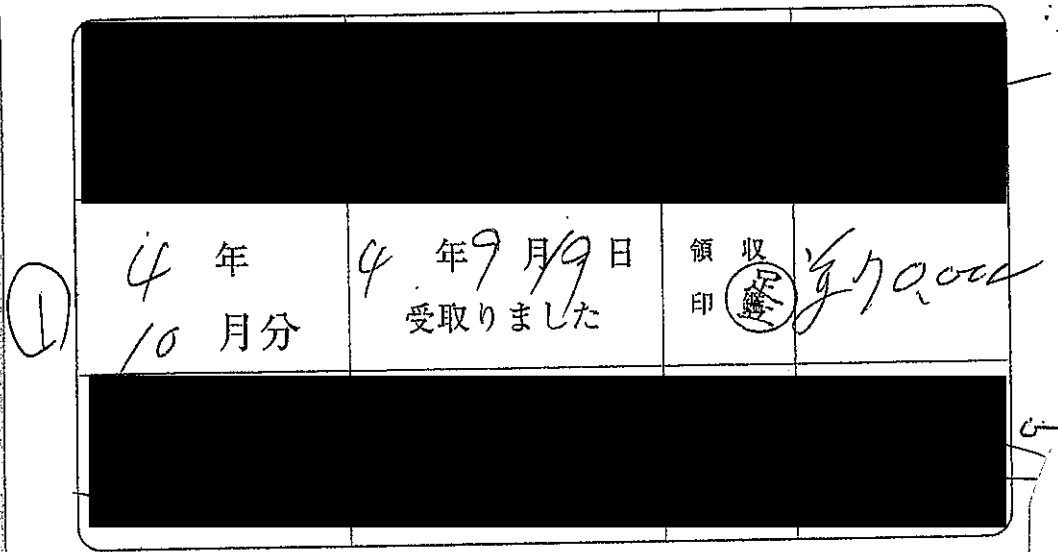 ①
4年
10月分
4年9月19日
受取りました
領収
印
¥70,000